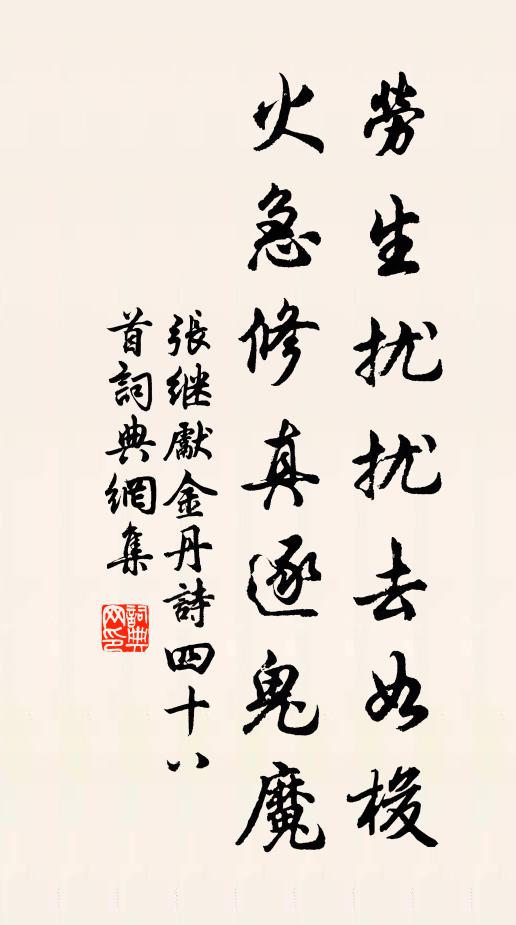 勞生扰扰去如梭
火急修真逐鬼魔
張继獻金丹詩四十八
首詞典網集
詞典
网印